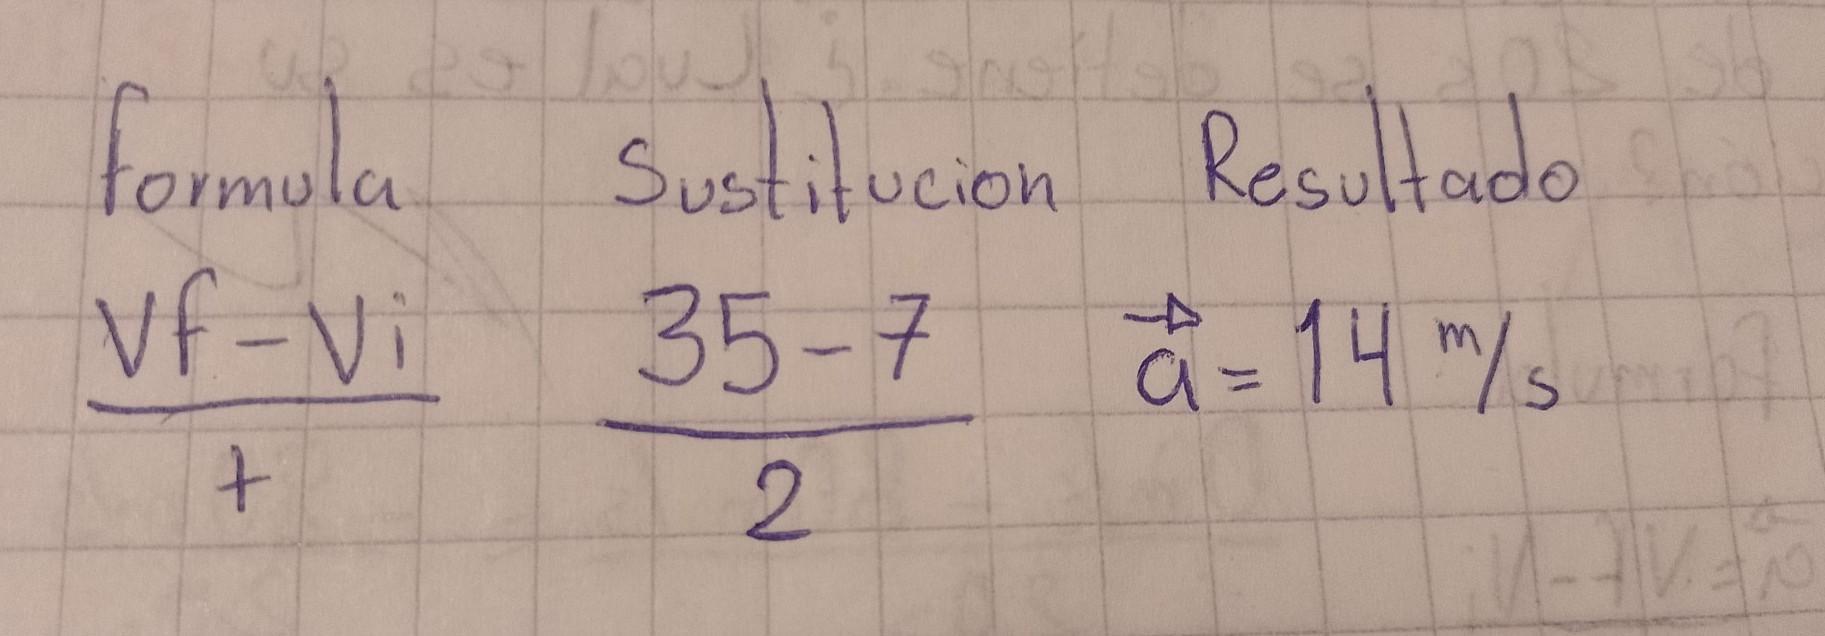 formula Sustitucion Resultado
Vf-Vi 35-7 a = 14 m/s
t 2